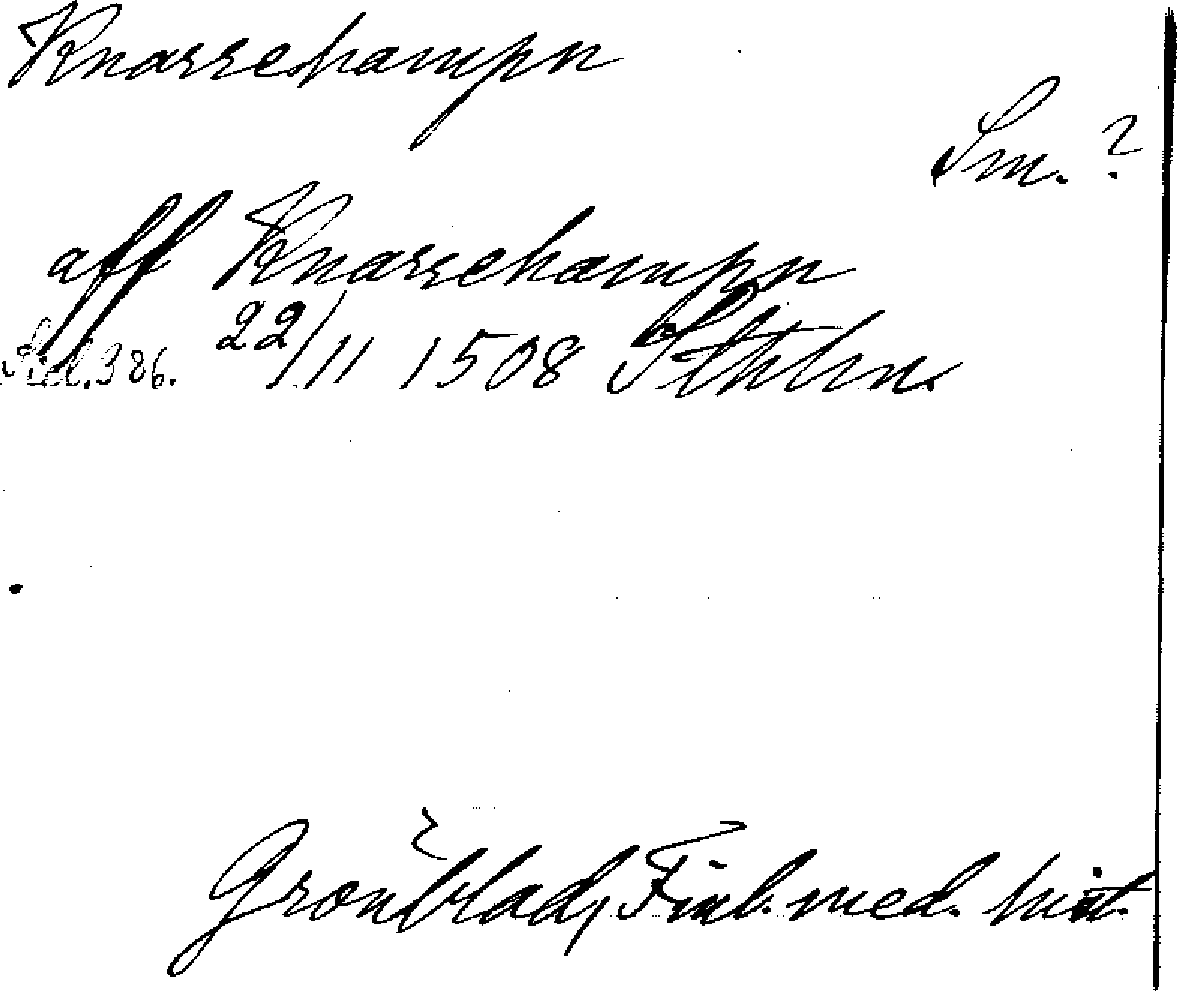 Knarrehampn
Sm. ?
aff Knarrehampn
Sid. 386. 22/11 1508 Sthlm.
Grönblad, Finl. med. hist.